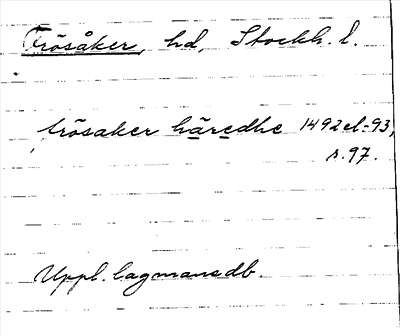 Frösåker, hd, Stockh. l.
frösaker häredhe 1492 el. 93,
s. 97.
Uppl. lagmansdb.